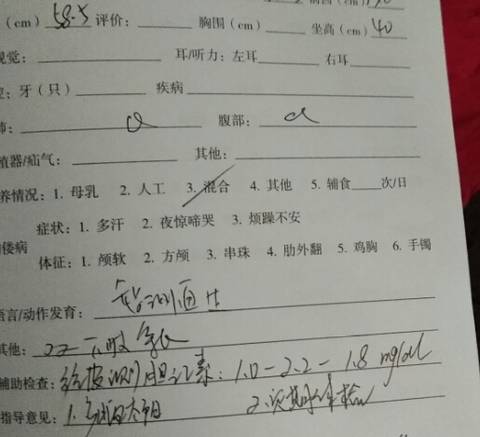 （cm）58.5 评价：______ 胸围（cm）______ 坐高（cm）40
视觉：______ 耳/听力：左耳______ 右耳______
牙（只）______ 疾病______
腹部：
殖器/疝气：______ 其他：______
养情况：1. 母乳 2. 人工 3. 混合 4. 其他 5. 辅食____次/日
佝偻病 症状：1. 多汗 2. 夜惊啼哭 3. 烦躁不安
体征：1. 颅软 2. 方颅 3. 串珠 4. 肋外翻 5. 鸡胸 6. 手镯
语言/动作发育：智测通过
其他：
辅助检查：经皮测胆红素：1.0-2.2-1.8 mg/dl
指导意见：1. 2. 定期体检